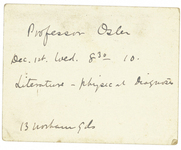 Professor Osler
Dec. 1st. Wed. 8 30 10.
Literature – Physical Diagnosis
13 Norham Gds